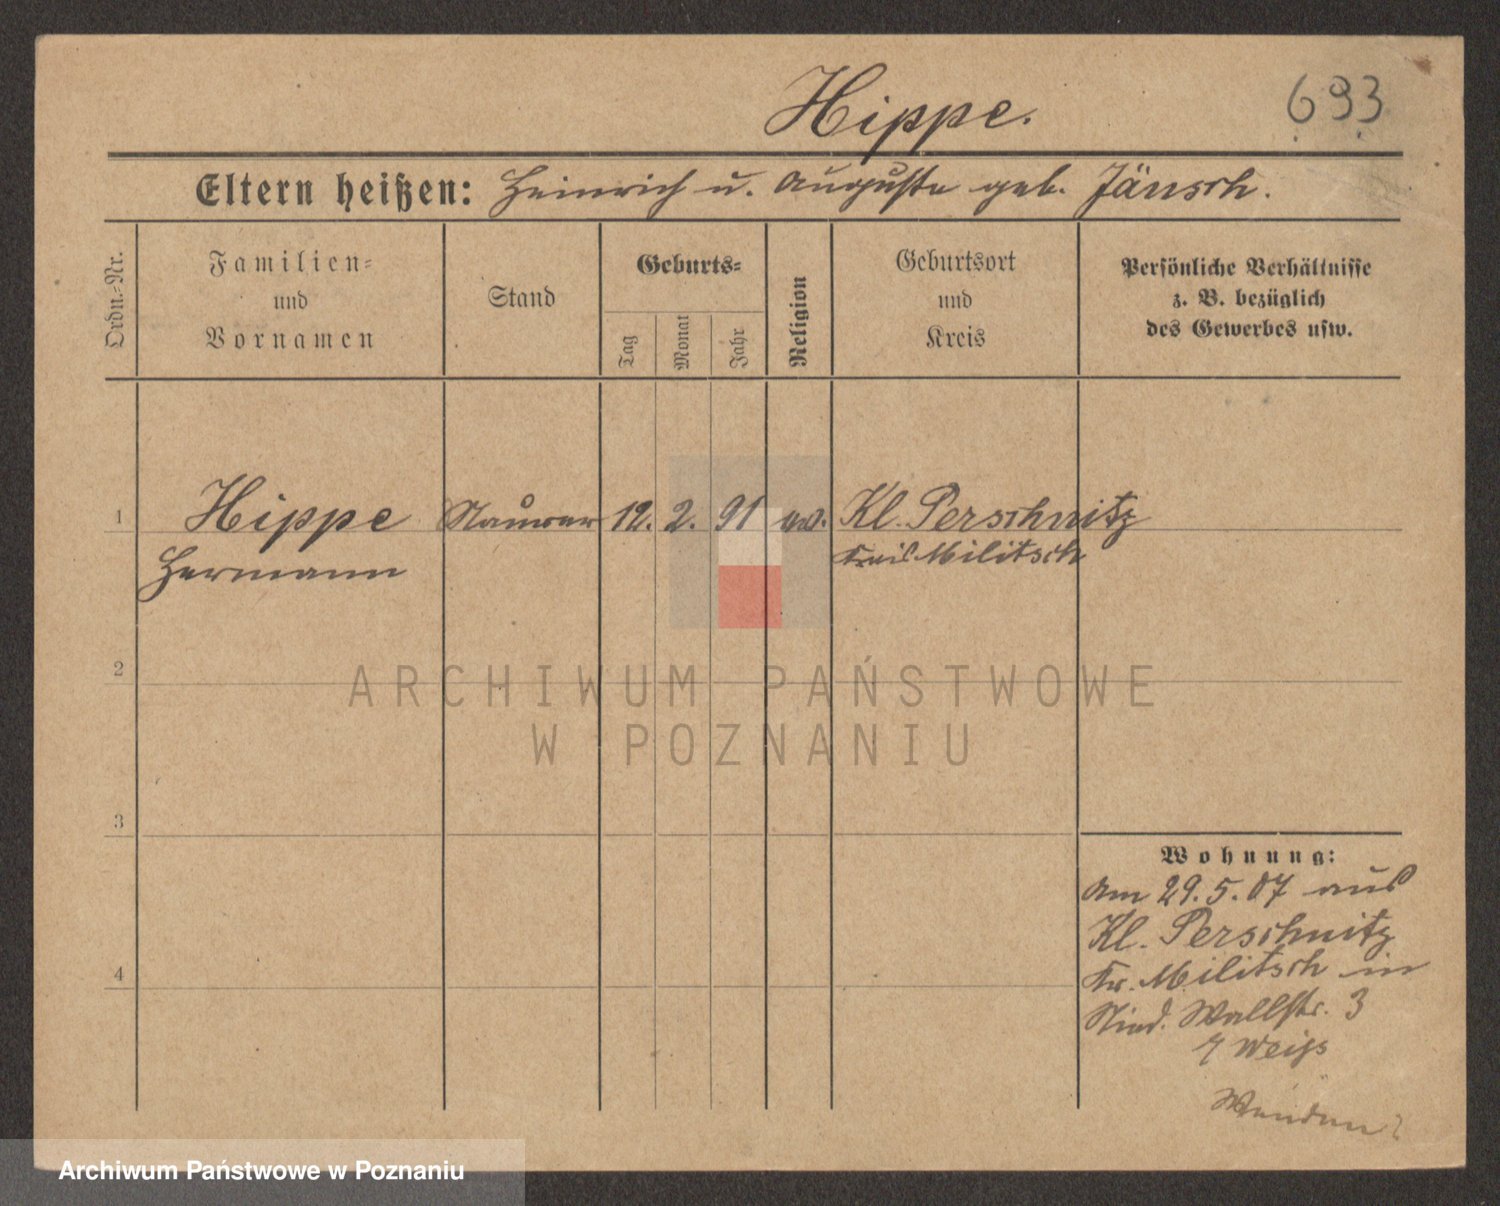 Hippe.
693
Eltern heißen: Heinrich u. Auguste geb. Jänsch.
Ordn.-Nr.
Familien-
und
Vornamen
Stand
Geburts-
Tag
Monat
Jahr
Religion
Geburtsort
und
Kreis
Persönliche Verhältnisse
z. B. bezüglich
des Gewerbes usw.
1 Hippe Maurer 12. 2. 91 ev. Kl. Perschnitz
Hermann Kreis Militsch
2
ARCHIWUM PAŃSTWOWE
W POZNANIU
3
Wohnung:
Am 29.5.07 aus
Kl. Perschnitz
4
Kr. Militsch in
Wallstr. 3
Weiss
Archiwum Państwowe w Poznaniu